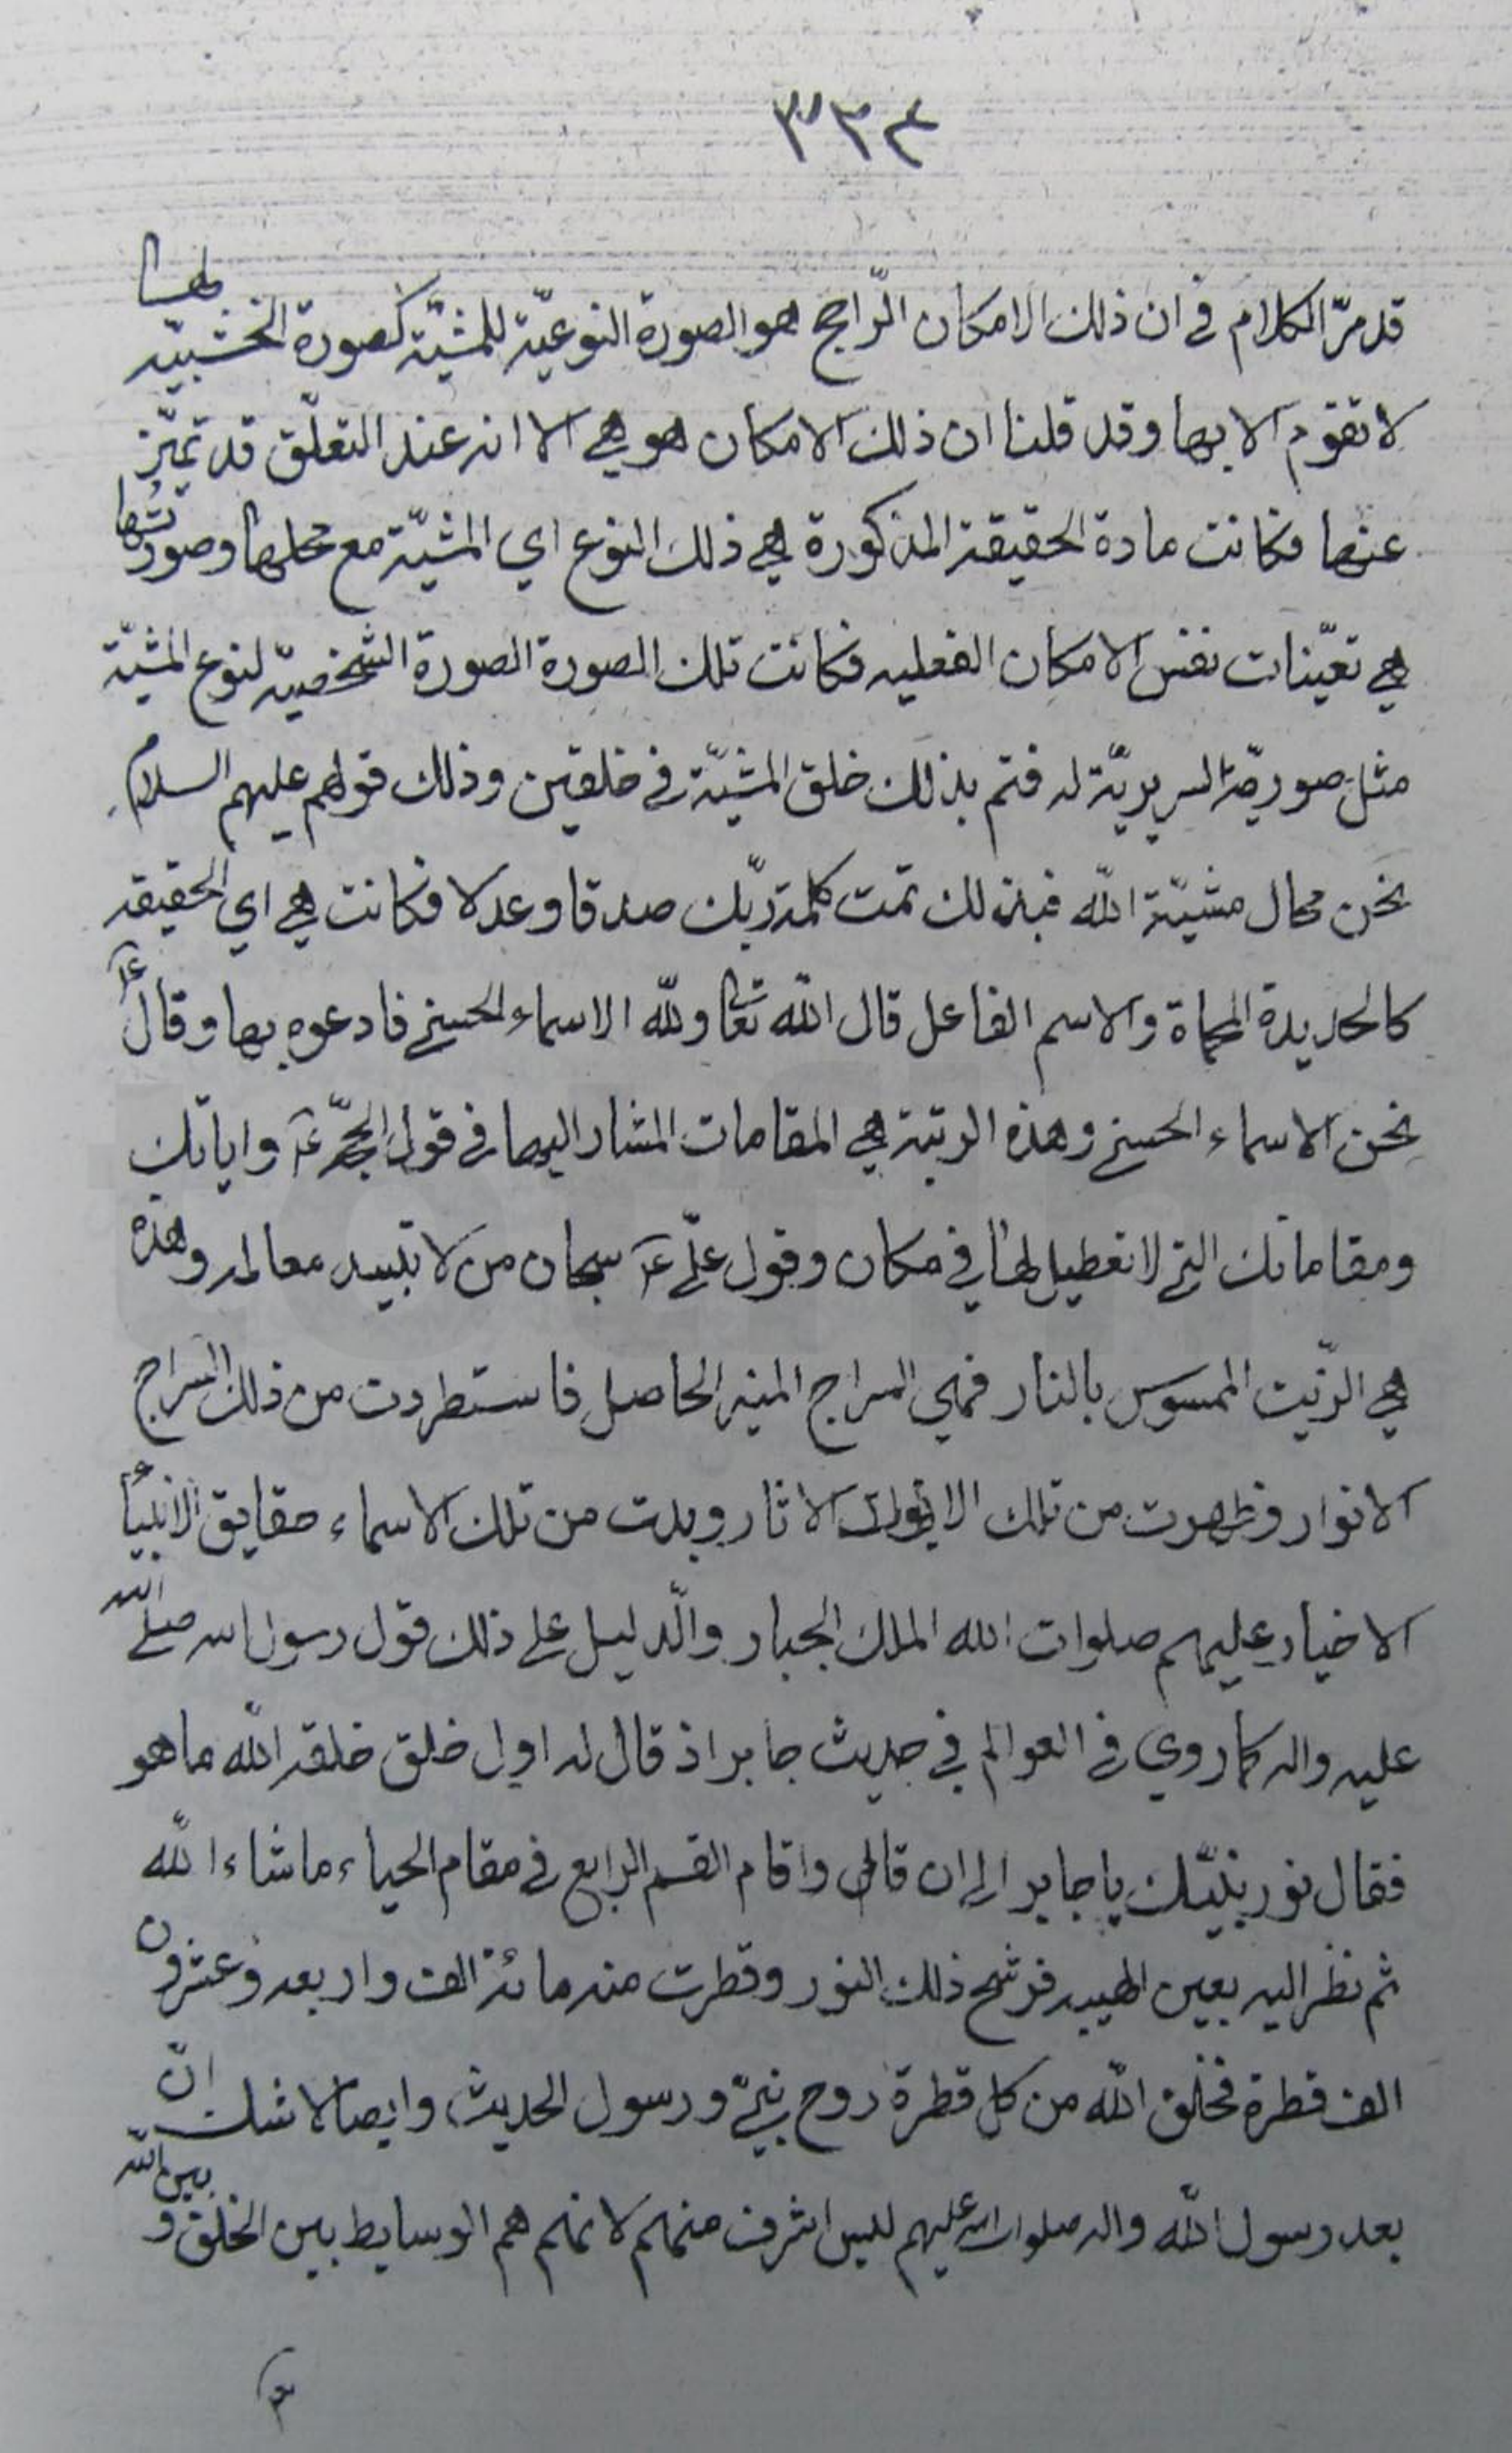 ٣٣٤
قد مرّ الكلام في ان ذلك الامكان الرّاجح هو الصورة النوعيّة للمشيّة كصورة الخشبيّه
لا تقوم الا بها وقد قلنا ان ذلك الامكان هو هي الا انه عند التعلّق قد تميّز
عنها فكانت مادة الحقيقة المذكورة هي ذلك النوع اي المشيّة مع محلها وصورتها
هي تعيّنات نفس الامكان الفعليه فكانت تلك الصورة الصورة الشخصيّة لنوع المشيّة
مثل السريريّة له فتم بذلك خلق المشيّة في خلقين وذلك قولهم عليهم السلام
نحن محال مشيّة الله فبذلك تمت كلمة ربّك صدقا وعدلا فكانت هي اي الحقيقه
كالحديدة المحماة والاسم الفاعل قال الله تعالى ولله الاسماء الحسنى فادعوه بها وقال ع
نحن الاسماء الحسنى وهذه الرتبة هي المقامات المشار اليها في قول الحجّة ع واياتك
ومقاماتك التي لا تعطيل لها في مكان وقول عليّ ع سبحان من لا تبيد معالمه وهذه
هي الزّيت الممسوس بالنار فهي السراج المنير الحاصل فاستطردت من ذلك السراج
الانوار وظهرت من تلك الاثار وبدت من تلك الاسماء حقايق الانبياء
الاخيار عليهم صلوات الله الملك الجبار والدّليل على ذلك قول رسول الله صلى الله
عليه واله كما روي في العوالم في حديث جابر اذ قال له اول خلق خلقه الله ما هو
فقال نور نبيّك يا جابر الى ان قال واقام القسم الرابع في مقام الحياء ما شاء الله
ثم نظر اليه بعين الهيبه فرشح ذلك النور وقطرت منه مائة الف واربعه وعشرون
الف قطرة فخلق الله من كل قطرة روح نبيّ ورسول الحديث وايضا لا شك انّ
بعد رسول الله واله صلوات الله عليهم ليس اشرف منهم لانهم هم الوسايط بين الخلق و بين الله